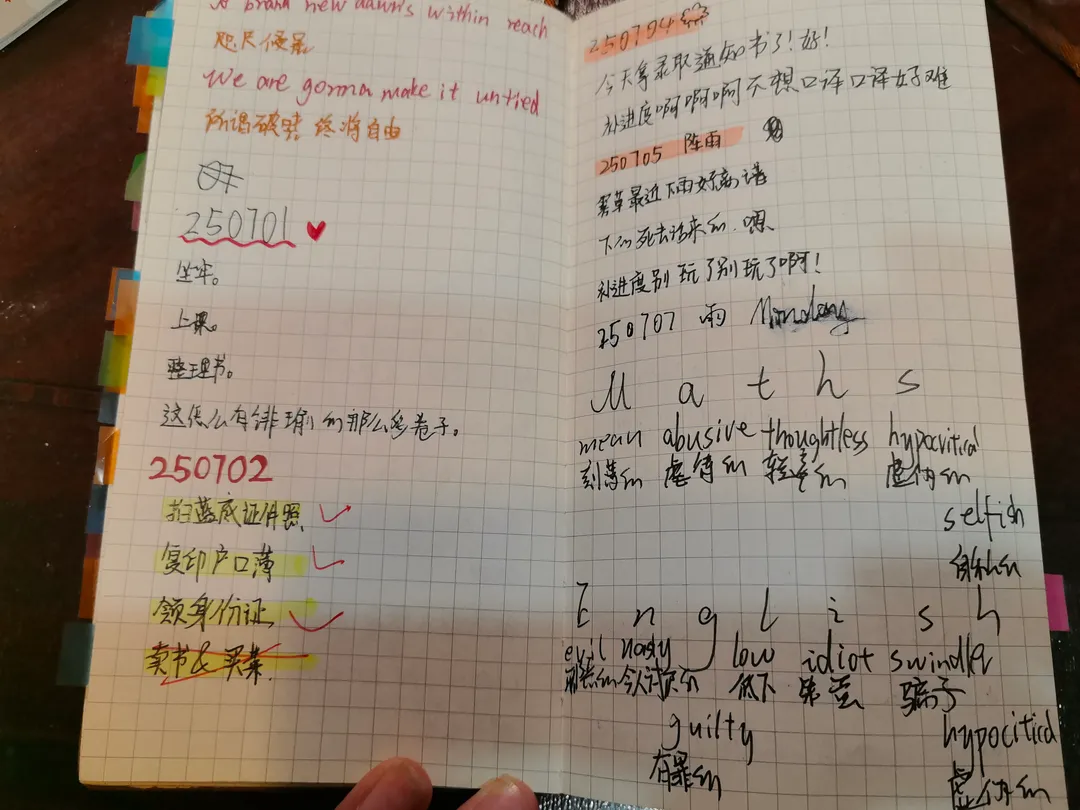 A brand new dawn's within reach
咫尺便是
We are gonna make it untied
所谓破晓 终将自由
07
250701
坐牢。
上课。
整理书。
这怎么有绯瑜的那么多卷子。
250702
拍蓝底证件照
复印户口薄
领身份证
卖书&买菜
250704
今天拿录取通知书了!好!
补进度啊啊啊啊不想口译口译好难
250705 阵雨
雾草最近下雨好离谱
下的死去活来的.嗯
补进度别玩了别玩了啊!
250707 雨 Monday
M a t h s
mean abusive thoughtless hypocritical
刻薄的 虐待的 轻率的 虚伪的
selfish
自私的
E n g l i s h
evil nasty low idiot swindler
邪恶的 令人讨厌的 低下 笨蛋 骗子
guilty hypocitical
有罪的 虚伪的